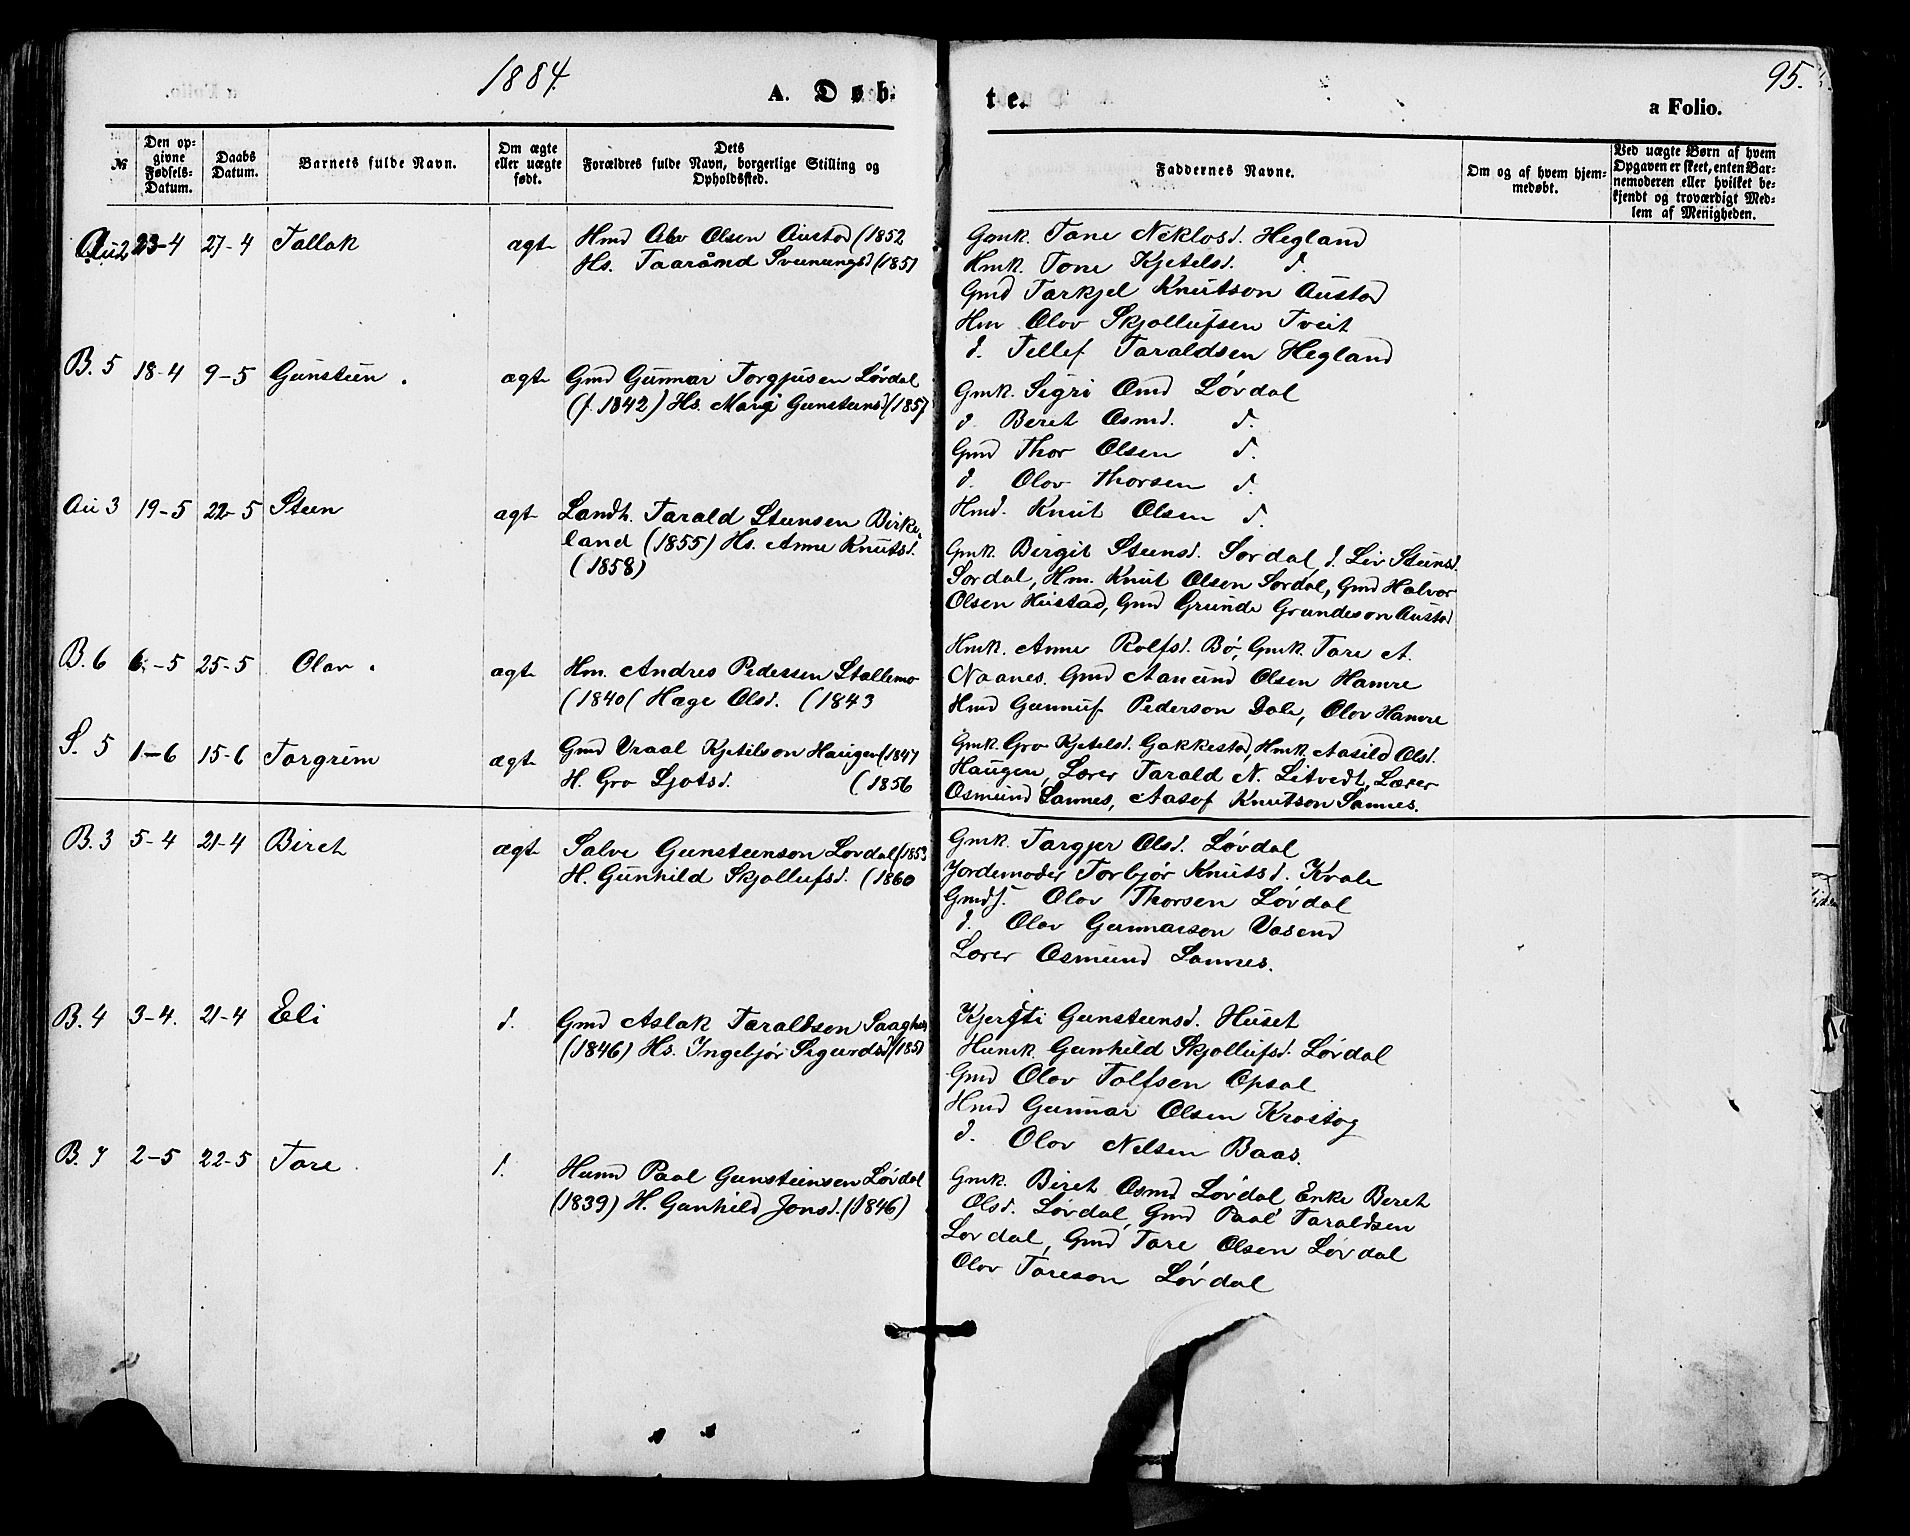 1884.
A. Døb-
te.
95.
a Folio.
№
Den op-
givne
Fødsels-
Datum.
Daabs
Datum.
Barnets fulde Navn.
Om ægte
eller uægte
født.
Dets
Forældres fulde Navn, borgerlige Stilling og
Opholdssted.
Faddernes Navne.
Om og af hvem hjem-
medøbt.
Ved uægte Børn af hvem
Opgaven er skeet, enten Bar-
nemoderen eller hvilket be-
kjendt og troværdigt Med-
lem af Menigheden.
Au 2 23-4 27-4 Tallak ægte Hmd Alv Olsen Austad (1852
Hs. Taarånd Sveinungsd (1851
Gmk. Tone Neklosd. Hegland
Hmk. Tone Kjetelsd. d.
Gmd Tarkjel Knutson Austad
Hm Olav Skjollufsen Tveit
d. Tellef Taraldsen Hegland
B. 5 18-4 9-5 Gunsteen. ægte Gmd Gunnar Torgjusen Løvdal
(f. 1842) Hs. Margi Gunsteensd (1857
Gmk. Sigri Omd Løvdal
d. Beret Osmd. d.
Gmd Thor Olsen d.
d. Olov Thorsen d.
Hmd. Knut Olsen d.
Au 3 19-5 22-5 Steen ægt Landh. Tarald Steensen Birke-
land (1855) Hs. Anne Knutsd.
(1858)
Gmk. Birgit Steensd. Sordal, d. Liv Steensd.
Sordal, Hm. Knut Olsen Sordal, Gmd Halvor
Olsen Hustad, Gmd Grunde Grundeson Austad
B. 6 6-5 25-5 Olav. ægte Hm. Andres Pedersen Stallemo
(1840( Hæge Olsd. (1843
Hmk. Anne Rolfsd. Bø, Gmk Tare A.
Naanes. Gmd Aanund Olsen Hamre
Hmd Gunnuf Pederson Dale, Olov Hamre
S. 5 1-6 15-6 Torgrim ægte Gmd Vraal Kjetilson Haugen (1847
H. Gro Ljotsd. (1856
Gmk. Gro Kjetelsd. Gakkestad, Hmk. Aasild Olsd.
Haugen, Lærer Tarald N. Litvedt, Lærer
Osmund Sannes, Aasof Knutson Sannes.
B. 3 5-4 21-4 Biret ægte Salve Gunsteenson Lovdal (1853
H. Gunhild Skjollufsd. (1860
Gmk. Targjer Olsd. Løvdal
Jordemoder Torbjør Knutsd. Kvale
Gmds. Olov Thorsen Løvdal
d. Olov Gunnarson Vasend
Lærer Osmund Sannes.
B. 4 3-4. 21-4 Eli d. Gmd Aslak Taraldsen
(1846) Hs. Ingebjør Sigurdsd (1851
Kjersti Gunsteensd. Huset
Humk Gunhild Skjollufsd. Løvdal
Gmd Olov Tolfsen Opsal
Hmd Gunnar Olsen Krostøg
d. Olov Nelsen Baas.
B. 7 2-5 22-5 Tore. d. Humd Paal Gunsteensen Løvdal
(1839) H. Gunhild Jonsd. (1846)
Gmk. Biret Osmd Løvdal, Enke Beret
Olsd. Løvdal, Gmd Paal Taraldsen
Lovdal, Gmd Tore Olsen Løvdal
Olov Toreson Løvdal